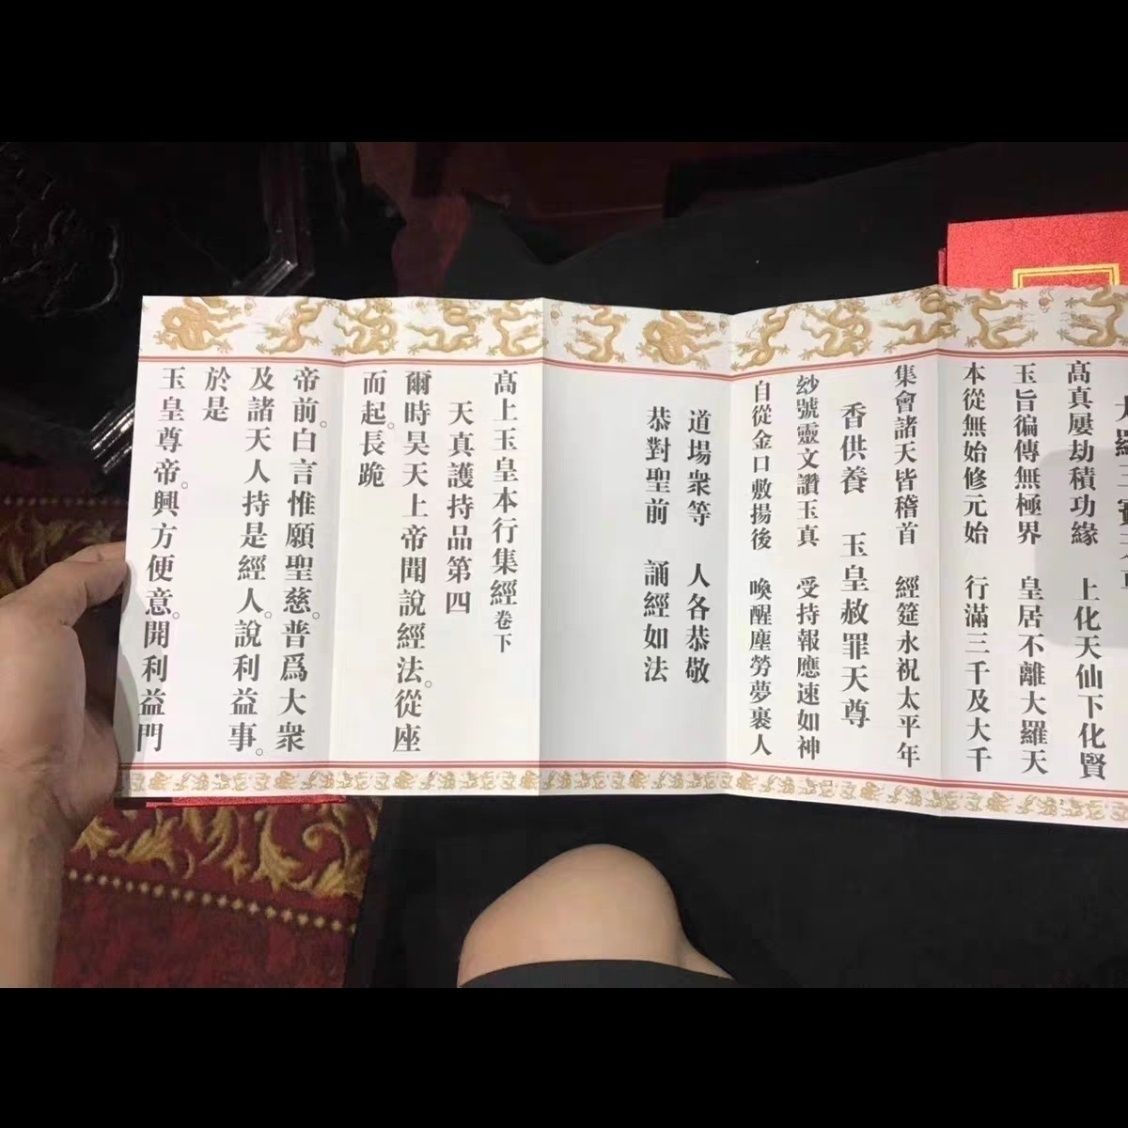 大羅三寶天尊
高真屢劫積功緣　上化天仙下化賢
玉旨徧傳無極界　皇居不離大羅天
本從無始修元始　行滿三千及大千
集會諸天皆稽首　經筵永祝太平年
香供養　玉皇赦罪天尊
玅號靈文讚玉真　受持報應速如神
自從金口敷揚後　喚醒塵勞夢裏人
道場衆等　人各恭敬
恭對聖前　誦經如法
高上玉皇本行集經卷下
天真護持品第四
爾時昊天上帝聞說經法。從座
而起。長跪
帝前。白言惟願聖慈。普爲大衆
及諸天人持是經人。說利益事。
於是
玉皇尊帝。興方便意。開利益門